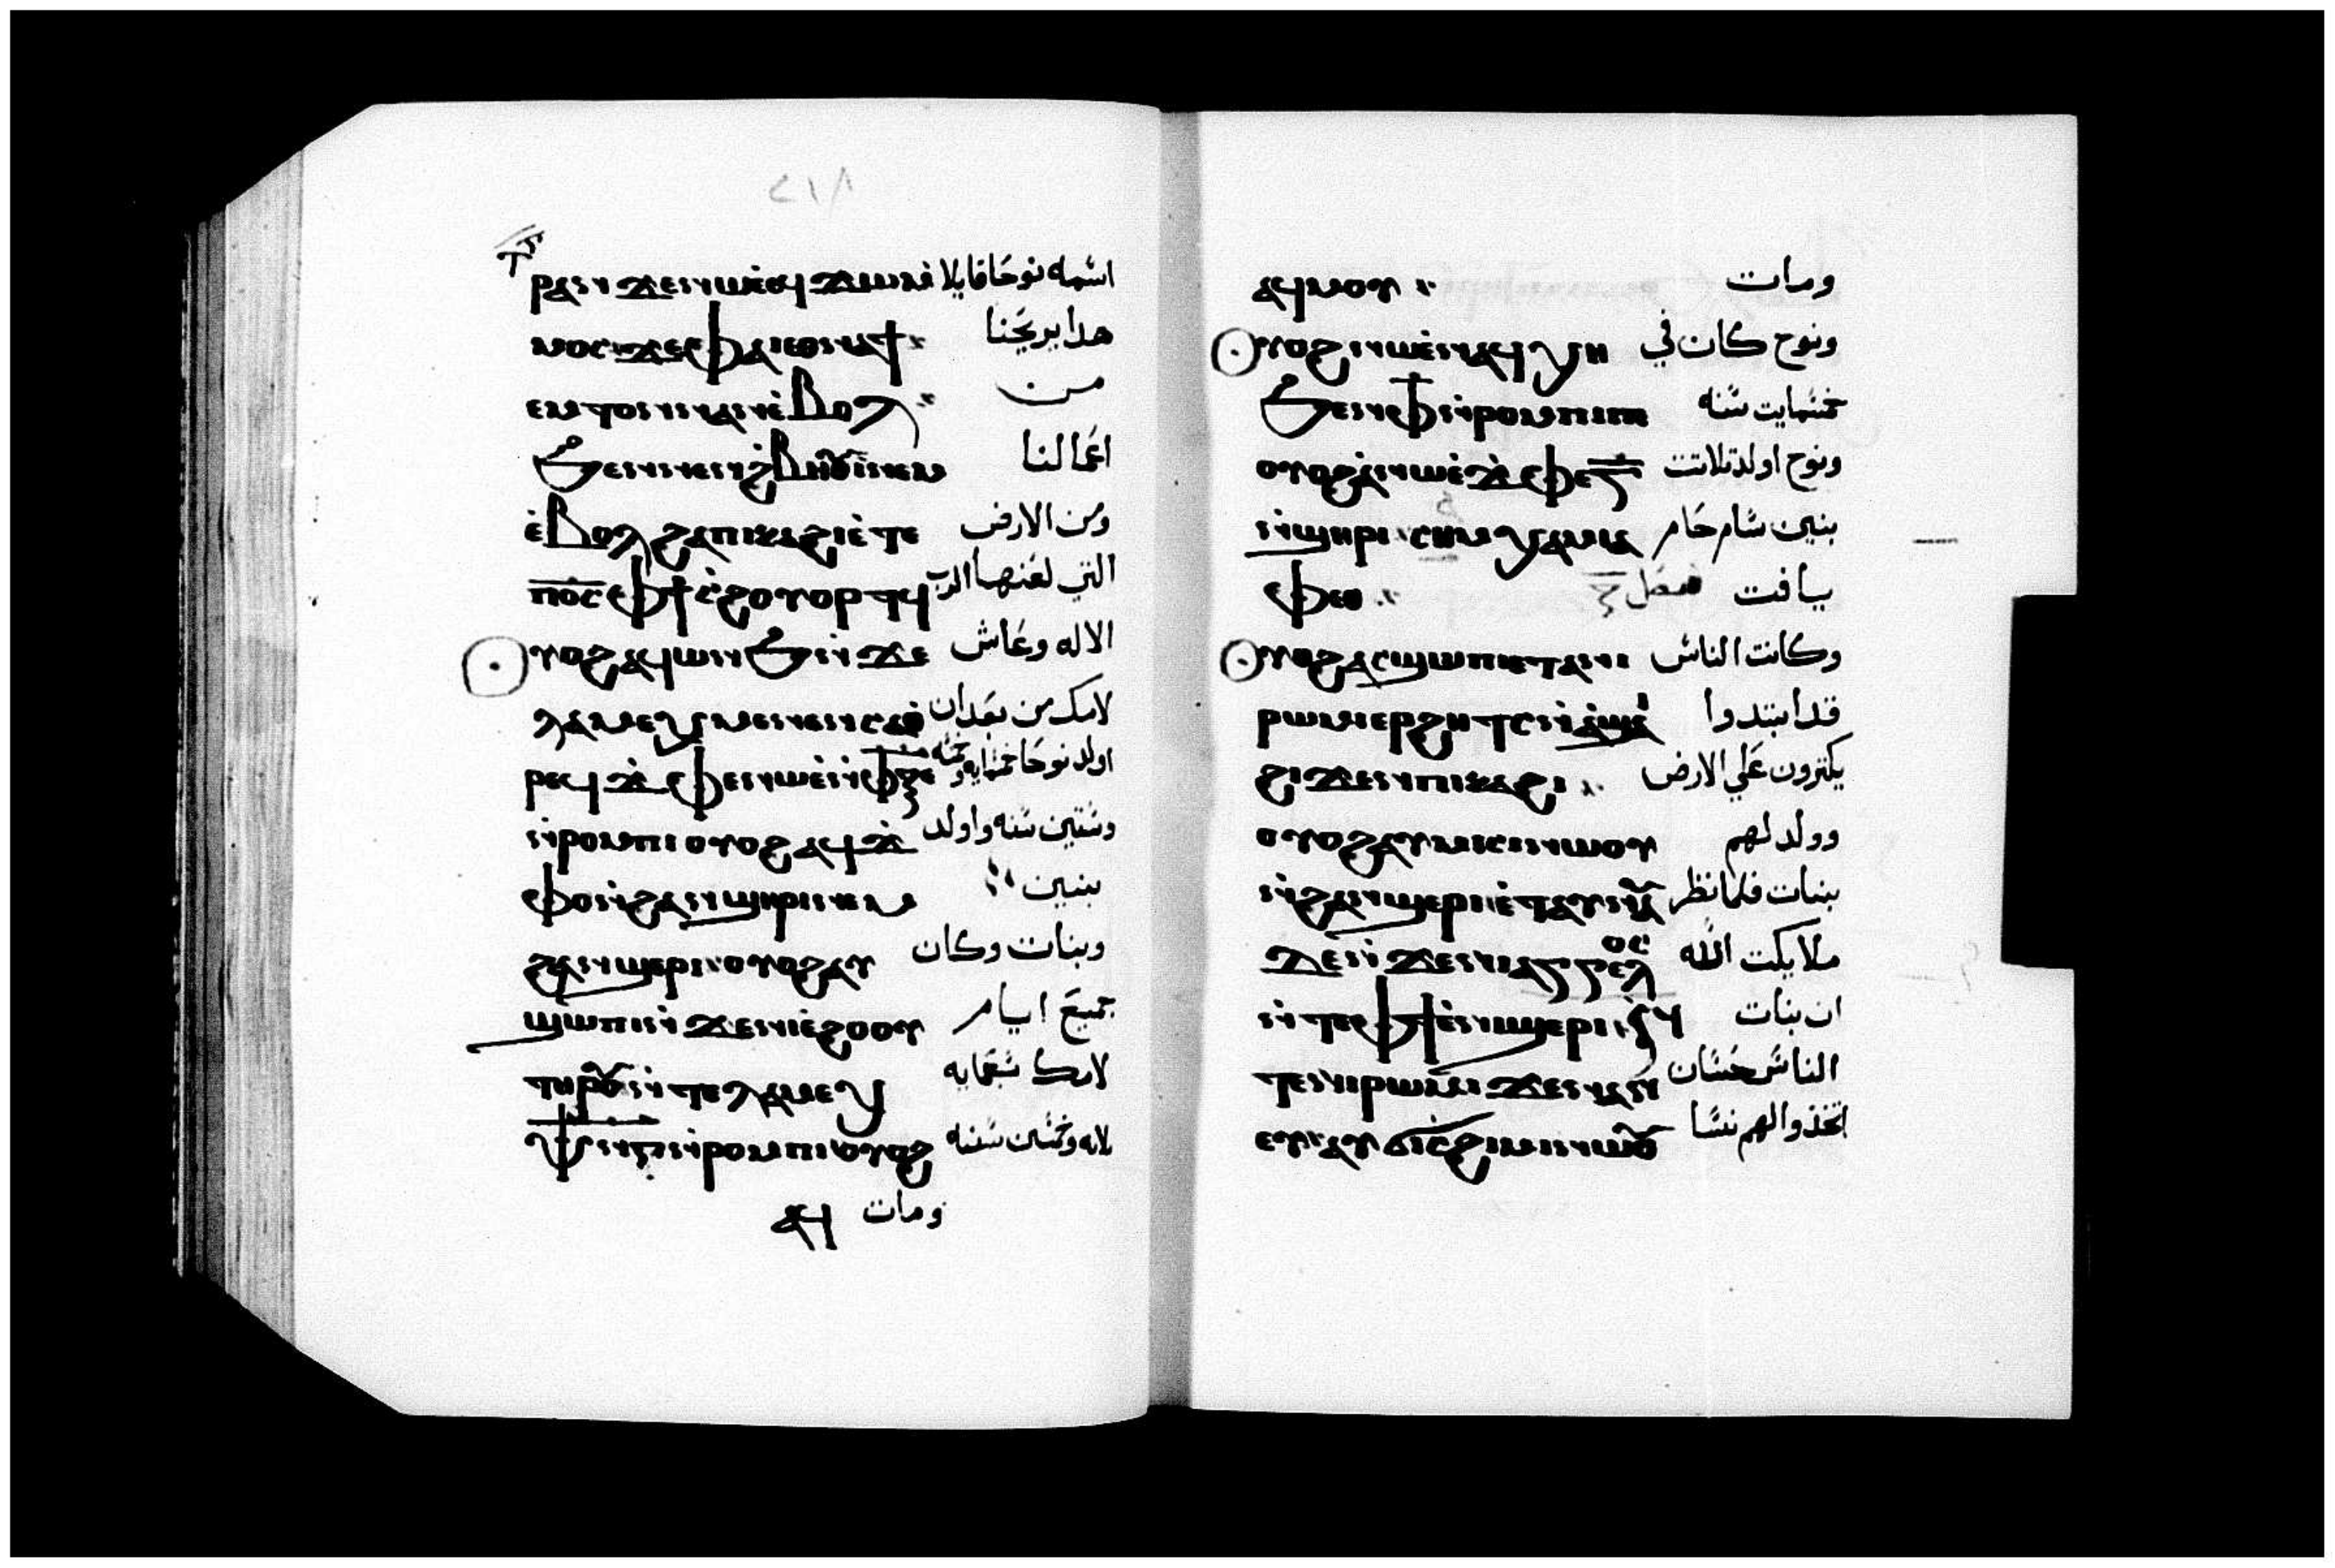 ⲣⲁⲛ ϫⲉ ⲛⲱⲉ̀ ⲉϥϫⲱⲙ̀ اسمه نوحا قايلا
ⲙⲟⲥ ϫⲉ ⲫⲁⲓ ⲉⲑⲛⲁϯ هدا يريحنا
ⲉⲙⲧⲟⲛ ⲛⲁⲛ ⲉ̀ⲃⲟⲗ من
ϧⲉⲛ ⲛⲉⲛϩ̀ⲃⲏⲟⲩⲓ ⲛⲉⲙ اعمالنا
ⲉ̀ⲃⲟⲗ ϩⲁ ⲡⲓⲕⲁϩⲓ ⲉ̀ⲧⲉ ومن الارض
ⲡⲟ̅ⲥ̅ ⲫϯ ⲥ̀ϩⲟⲩⲟⲣⲧϥ التي لعنها الرب
ⲟⲩⲟϩ ⲁϥⲱⲛϧ ⲛ̀ϫⲉ الاله وعاش
ⲗⲁⲙⲉⲭ ⲙⲉⲛⲉⲛⲥⲁⲑ̀ لامك من بعد ان
ⲣⲉϥϫ̀ⲫⲉ ⲛⲱⲉ̀ ⲛ̀ⲫ̅ⲝ̅ⲉ̅ اولد نوحا خمسمايه وخمسه
ⲛ̀ⲣⲟⲙⲡⲓ ⲟⲩⲟϩ ⲁϥϫ̀ وستين سنه واولد
ⲫⲟ ⲛ̀ϩⲁⲛϣⲏⲣⲓ ⲛⲉⲙ بنين
ϩⲁⲛϣⲉⲣⲓ ⲟⲩⲟϩ ⲁⲩ وبنات وكان
ϣⲱⲡⲓ ⲛ̀ϫⲉ ⲛⲓⲉ̀ϩⲟⲟⲩ جميع ايام
ⲧⲏⲣⲟⲩ ⲛ̀ⲧⲉ ⲗⲁⲙⲉⲭ لامك سبعمايه
ⲛ̀ⲣⲟⲙⲡⲓ ⲟⲩⲟϩ وخمسين سنه
ⲁϥ ومات
ⲁϥⲙⲟⲩ ومات
ⲟⲩⲟϩ ⲛⲱⲉ̀ ⲛⲁϥⲭⲏ ونوح كان في
ϧⲉⲛ ⲫ̅ ⲛ̀ⲣⲟⲙⲡⲓ خمسمايت سنه
ⲟⲩⲟϩ ⲁ̀ ⲛⲱⲉ̀ ϫ̀ⲫⲉ ⲅ̅ ونوح اولد تلاتت
ⲛ̀ϣⲏⲣⲓ ⲥⲏⲙ ⲭⲁⲙ ⲓⲁ بنين سام حام
ⲫⲉⲑ يافت فصل
ⲟⲩⲟϩ ⲁⲥϣⲱⲡⲓ ⲉⲧⲁ ⲛⲓ وكانت الناس
ⲣⲱⲙⲓ ⲉⲣϩⲏⲧⲥ ⲛ̀ⲁ̀ϣⲁⲓ قد ابتدوا
ϩⲓϫⲉⲛ ⲡⲓⲕⲁϩⲓ يكثرون علي الارض
ⲟⲩⲟϩ ⲁⲩⲙⲓⲥⲓ ⲛⲱⲟⲩ وولد لهم
ⲛ̀ϩⲁⲛϣⲉⲣⲓ ⲉ̀ⲧⲁⲩⲛⲁⲩ بنات فلما نظر
ϫⲉ ⲛ̀ϫⲉ ⲛⲓⲁⲅⲅⲉⲗⲟⲥ ملايكت الله
ⲛ̀ⲧⲉ ⲫϯ ⲉ̀ⲛϣⲉⲣⲓ ⲛ̀ ان بنات
ⲧⲉ ⲛⲓⲣⲱⲙⲓ ϫⲉ ⲛⲁⲛⲉ الناس حسان
ⲟⲩ ⲁⲩϭⲓ ⲥ̀ϩⲓⲙⲓ ⲛⲱⲟⲩ اتخذوا لهم نسا